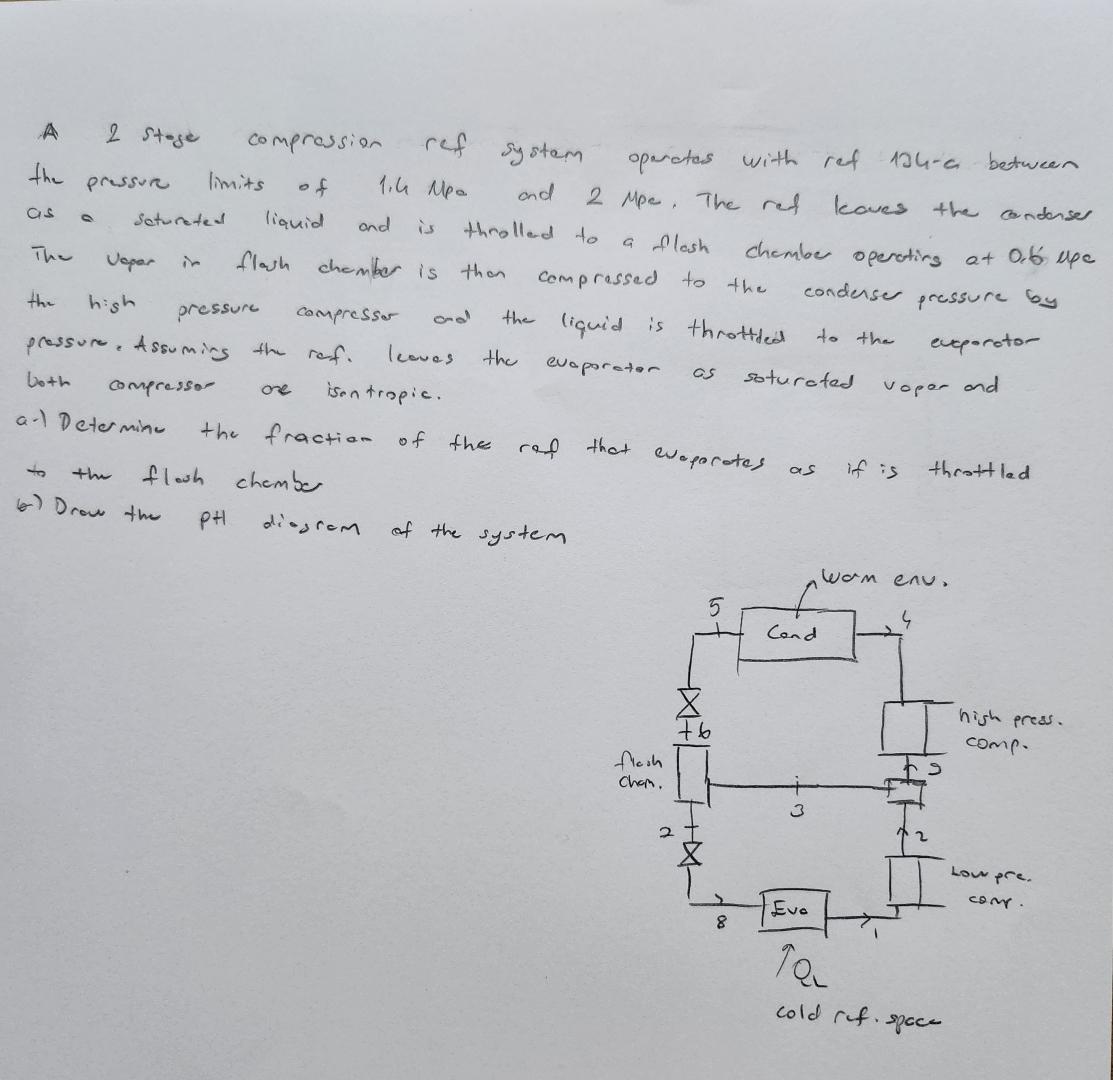 A 2 stage compression ref system operates with ref 134-a between
the pressure limits of 1.4 Mpa and 2 Mpa. The ref leaves the condenser
as a saturated liquid and is throlled to a flash chamber operating at 0.6 Mpa
The vapor in flash chamber is then compressed to the condenser pressure by
the high pressure compressor and the liquid is throttled to the evaporator
pressure. Assuming the ref. leaves the evaporator as saturated vapor and
both compressor are isentropic.
a-) Determine the fraction of the ref that evaporates as if is throttled
to the flash chamber
b-) Draw the PH diagram of the system
Warm env.
5
Cond
4
high press.
comp.
6
flash
cham.
9
3
2
2
Low pre.
comp.
Eva
8
1
QL
cold ref. space